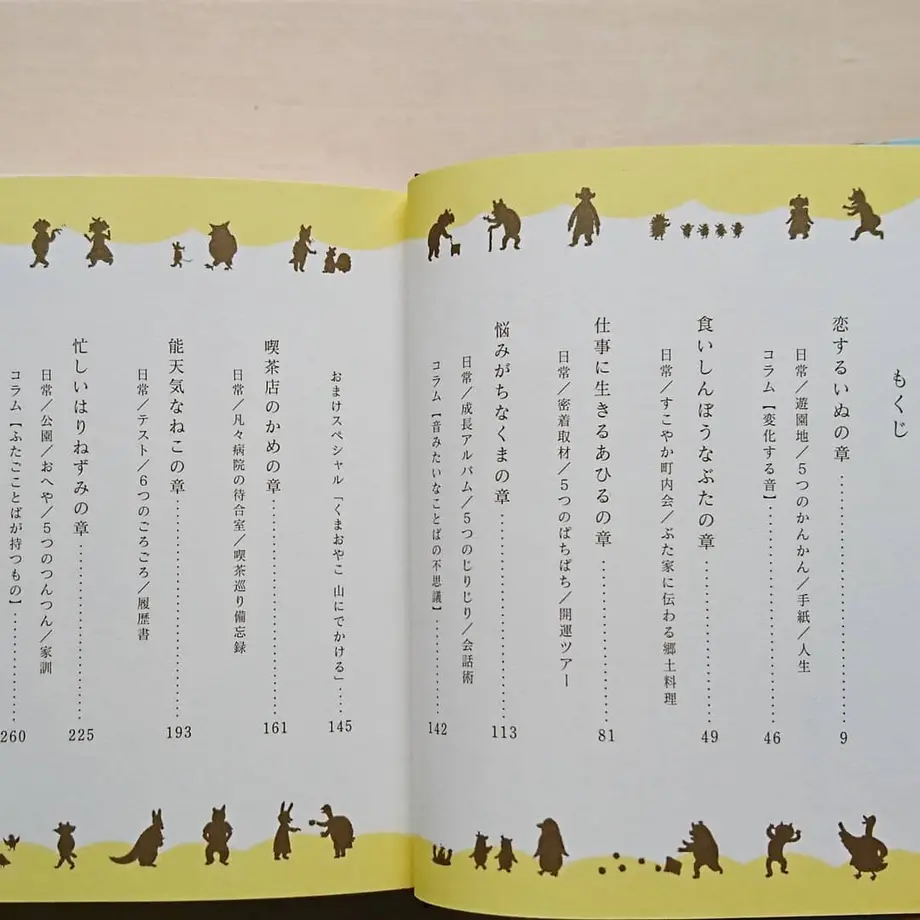 もくじ
恋するいぬの章……………………9
日常／遊園地／5つのかんかん／手紙／人生
コラム【変化する音】……………………46
食いしんぼうなぶたの章……………………49
日常／すこやか町内会／ぶた家に伝わる郷土料理
仕事に生きるあひるの章……………………81
日常／密着取材／5つのぱちぱち／開運ツアー
悩みがちなくまの章……………………113
日常／成長アルバム／5つのじりじり／会話術
コラム【音みたいなことばの不思議】……………………142
おまけスペシャル「くまおやこ 山にでかける」……145
喫茶店のかめの章……………………161
日常／凡々病院の待合室／喫茶巡り備忘録
能天気なねこの章……………………193
日常／テスト／6つのごろごろ／履歴書
忙しいはりねずみの章……………………225
日常／公園／おへや／5つのつんつん／家訓
コラム【ふたごことばが持つもの】……………………260